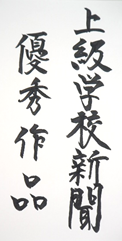 上級学校新聞
優秀作品